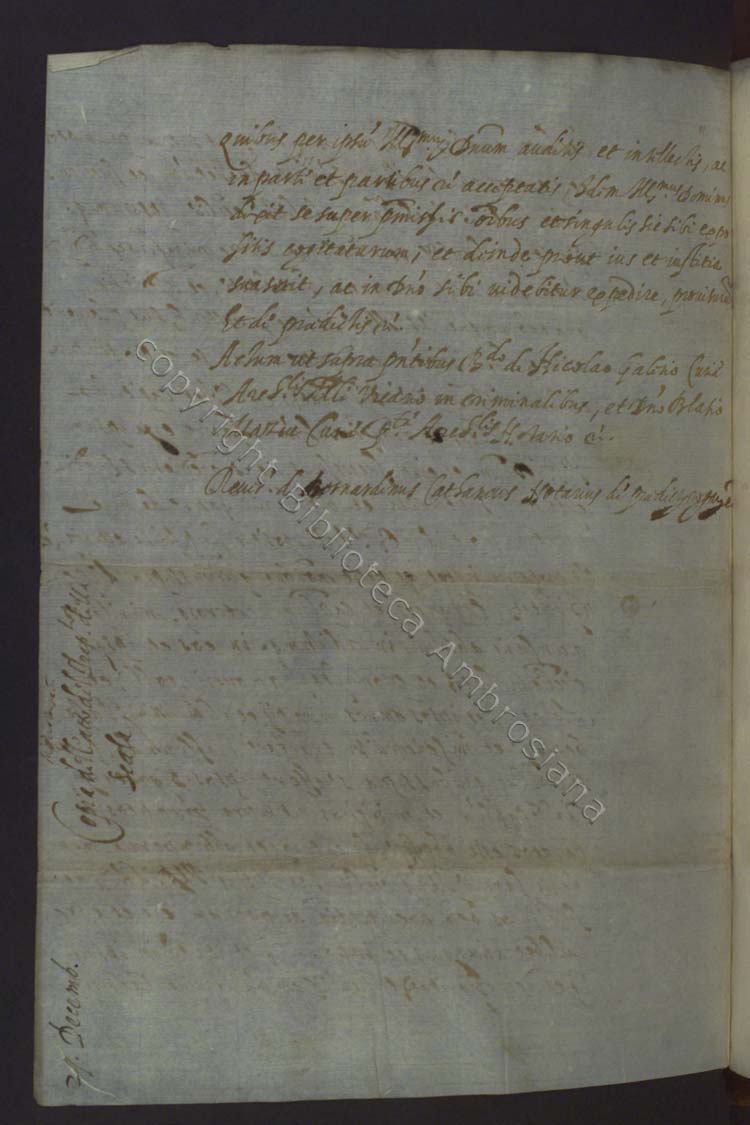 Quibus per ipsũ Ill.mũ Dnum auditis et intellectis, ac
in parte et partibus c̃ acceptatis Idem Ill.mus Dominus
dixit se super pm̃issis oĩbus et singulis sic sibi expo
sitis cogitaturum, et deinde prout ius et iustitia
suaserit, ac in Dño sibi videbitur expedire, provisur̃
Et de pradictis c̃.
Actum ut supra pñtibus de Nicolao Galerio Curie
Vicario in criminalibus, et Dño Blasio
Curie Notario c̃.
Rever. d. Bernardinus Cathaneus Notarius de pradictis
Copia di
Scala
Decemb.
copyright Biblioteca Ambrosiana